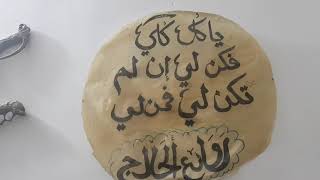 يا كل كلي
فكن لي إن لم
تكن لي فمن لي
روائع الحلاج